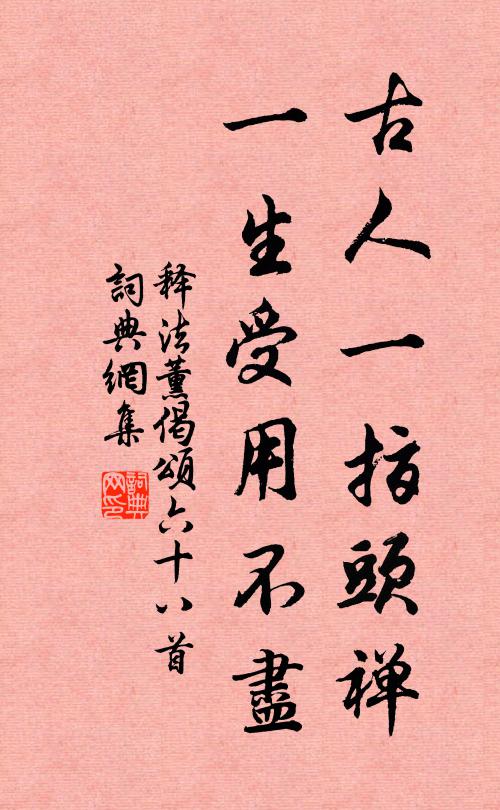 古人一指頭禅
一生受用不盡
释法薰偈頌六十八首
詞典網集
詞典网印